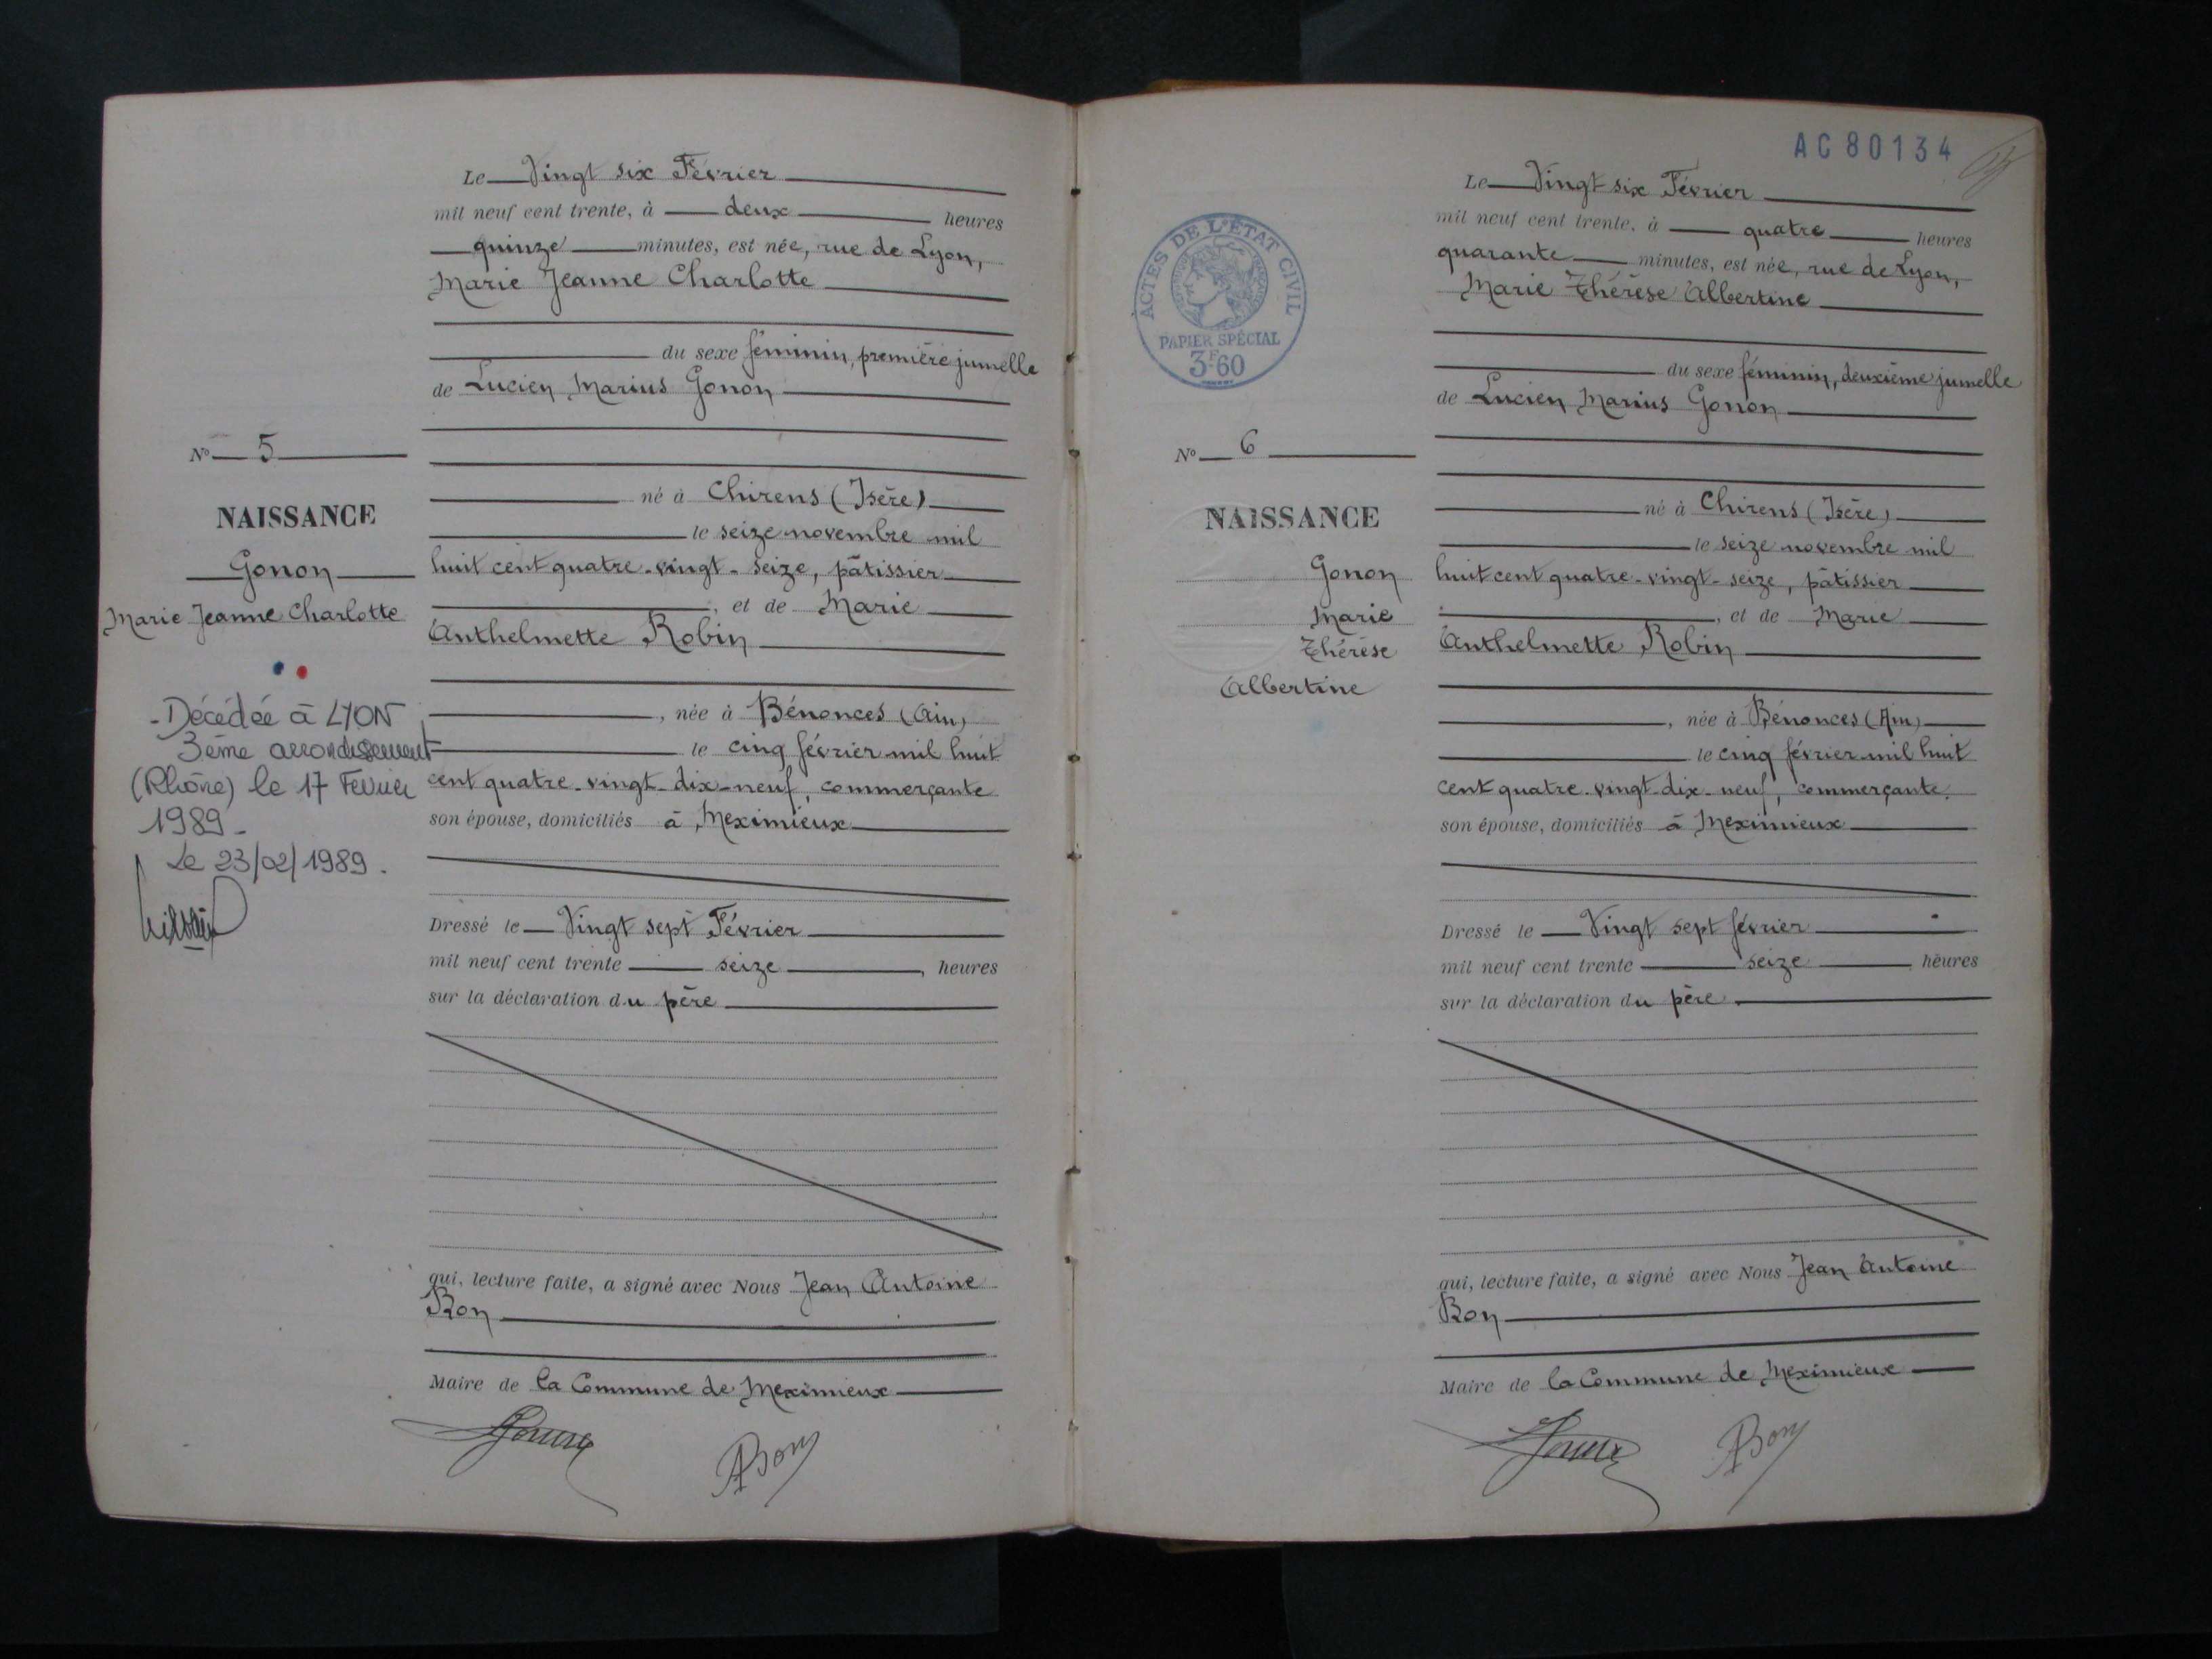 Le Vingt six Février
mil neuf cent trente, à deux heures
quinze minutes, est née, rue de Lyon,
Marie Jeanne Charlotte
du sexe féminin, première jumelle
de Lucien Marius Gonon
N° 5
né à Chirens (Isère)
NAISSANCE
le seize novembre mil
Gonon
huit cent quatre-vingt-seize, pâtissier
Marie Jeanne Charlotte
, et de Marie
Anthelmette Robin
- Décédée à LYON
, née à Bénonces (Ain)
3ème arrondissement
le cinq février mil huit
(Rhône) le 17 Février
cent quatre-vingt-dix-neuf, commerçante
1989 -
son épouse, domiciliés à Meximieux
Le 23/02/1989.
Dressé le Vingt sept Février
mil neuf cent trente seize, heures
sur la déclaration du père
qui, lecture faite, a signé avec Nous Jean Antoine
Bon
Maire de la Commune de Meximieux
ABon
AC80134
Le Vingt six Février
mil neuf cent trente, à quatre heures
quarante minutes, est née, rue de Lyon,
Marie Thérèse Albertine
ACTES DE L'ÉTAT CIVIL
PAPIER SPÉCIAL
3F60
du sexe féminin, deuxième jumelle
de Lucien Marius Gonon
N° 6
né à Chirens (Isère)
NAISSANCE
le seize novembre mil
Gonon
huit cent quatre-vingt-seize, pâtissier
Marie
, et de Marie
Thérèse
Anthelmette Robin
Albertine
, née à Bénonces (Ain)
le cinq février mil huit
cent quatre-vingt-dix-neuf, commerçante,
son épouse, domiciliés à Meximieux
Dressé le Vingt sept février
mil neuf cent trente seize heures
sur la déclaration du père
qui, lecture faite, a signé avec Nous Jean Antoine
Bon
Maire de la Commune de Meximieux
ABon